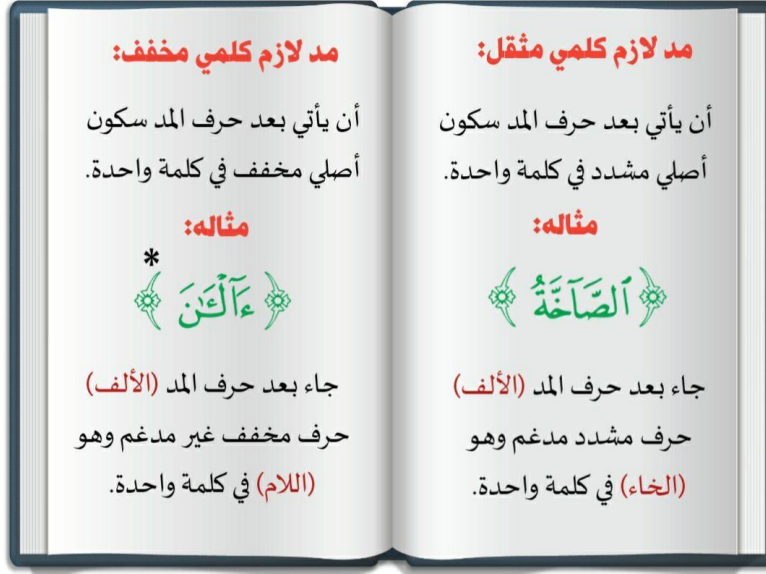 مد لازم كلمي مثقل:
أن يأتي بعد حرف المد سكون
أصلي مشدد في كلمة واحدة.
مثاله:
﴿ ٱلصَّآخَّةُ ﴾
جاء بعد حرف المد (الألف)
حرف مشدد مدغم وهو
(الخاء) في كلمة واحدة.
مد لازم كلمي مخفف:
أن يأتي بعد حرف المد سكون
أصلي مخفف في كلمة واحدة.
مثاله:
*
﴿ ءَآلْـَٰٔنَ ﴾
جاء بعد حرف المد (الألف)
حرف مخفف غير مدغم وهو
(اللام) في كلمة واحدة.